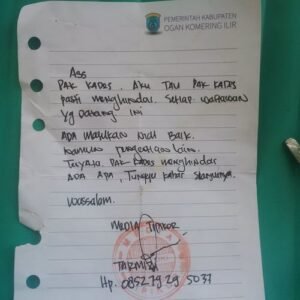 PEMERINTAH KABUPATEN
OGAN KOMERING ILIR
Ass
PAK KADES. AKU TAU PAK KADES
pasti menghindar. Setiap wartawan
yg datang ini
ADA maksud Niat Baik.
Namun
Ternyata PAK KADES menghindar
ADA APA, Tunggu kabar Selanjutnya.
Wassalam.
MEDIA TIPIKOR
TARMIZI
Hp. 0852 7929 5037